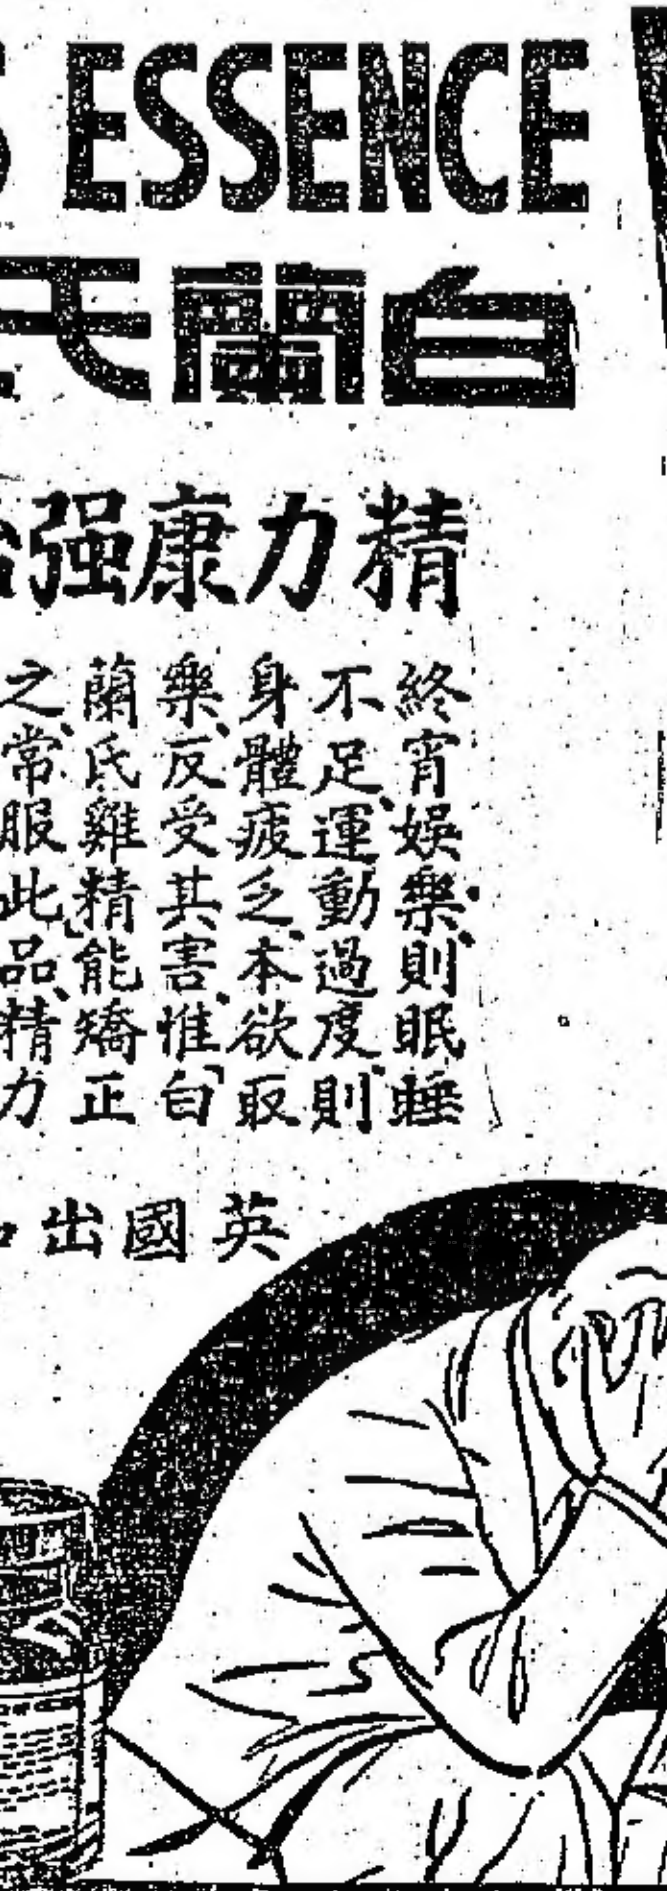 ESSENCE
白蘭氏
精力康強
終宵娛樂、則眠睡
不足、運動過度、則
身體疲乏、本欲取
樂、反受其害、惟「白
蘭氏雞精」能矯正
之、常服此品、精力
英國出